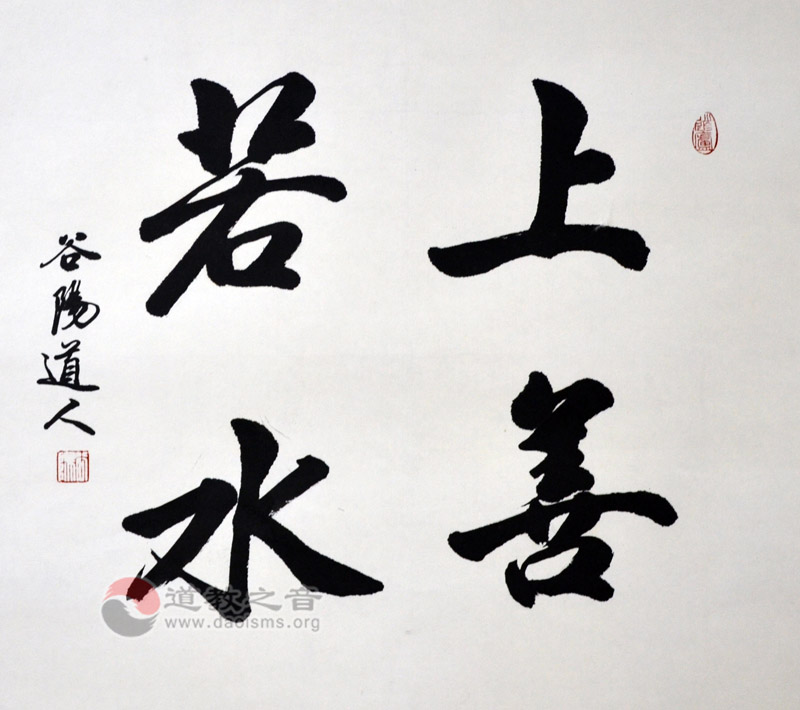 上善
若水
谷陽道人
道教之音
www.daoisms.org